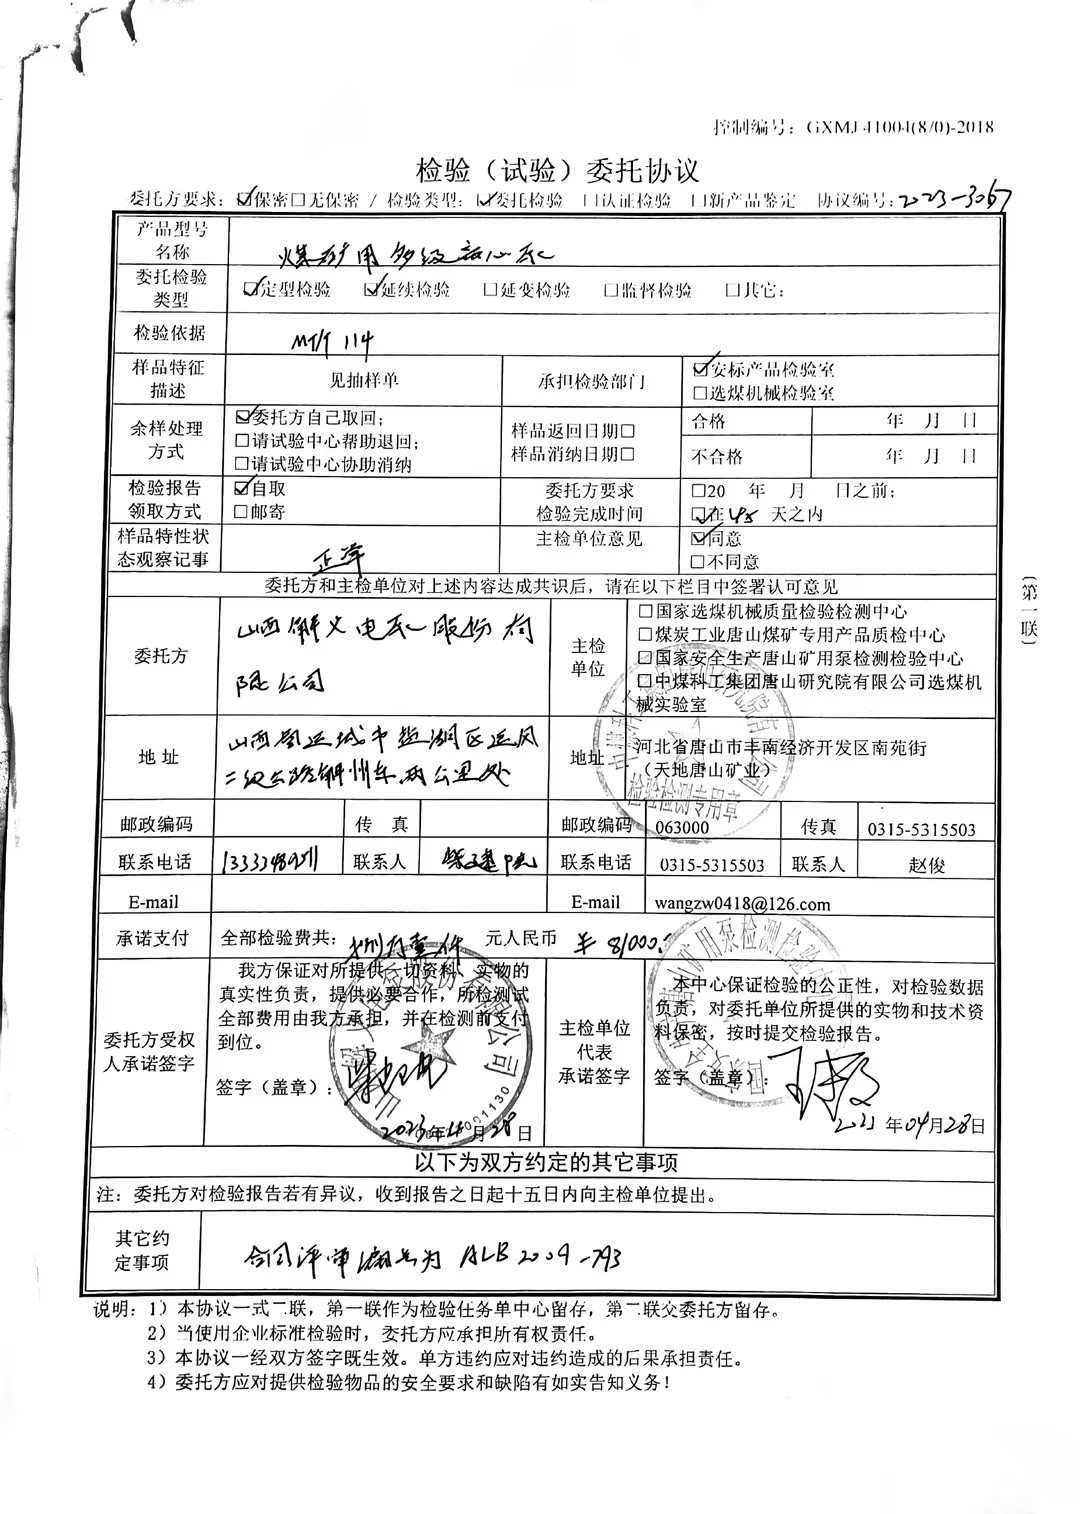 控制编号：GXMJ 41004(8/0)-2018
检验（试验）委托协议
委托方要求：☑保密□无保密 / 检验类型：☑委托检验 □认证检验 □新产品鉴定 协议编号：2023-3067
产品型号名称 煤矿用多级离心泵
委托检验类型 ☑定型检验 ☑延续检验 □延变检验 □监督检验 □其它：
检验依据 MT/T 114
样品特征描述 见抽样单 承担检验部门 ☑安标产品检验室
□选煤机械检验室
余样处理方式 ☑委托方自己取回；
□请试验中心帮助退回；
□请试验中心协助消纳
样品返回日期□
样品消纳日期□
合格 年 月 日
不合格 年 月 日
检验报告领取方式 ☑自取
□邮寄
委托方要求检验完成时间 □20 年 月 日之前；
☑在45天之内
样品特性状态观察记事 正常 主检单位意见 ☑同意
□不同意
委托方和主检单位对上述内容达成共识后，请在以下栏目中签署认可意见
委托方 山西解义电泵股份有限公司
主检单位 □国家选煤机械质量检验检测中心
□煤炭工业唐山煤矿专用产品质检中心
□国家安全生产唐山矿用泵检测检验中心
□中煤科工集团唐山研究院有限公司选煤机械实验室
地 址 山西省运城市盐湖区运风二级公路解州东两公里处
地址 河北省唐山市丰南经济开发区南苑街
（天地唐山矿业）
邮政编码 传 真 邮政编码 063000 传真 0315-5315503
联系电话 联系人 联系电话 0315-5315503 联系人 赵俊
E-mail E-mail wangzw0418@126.com
承诺支付 全部检验费共： 元人民币 ¥ 81000.
委托方受权人承诺签字
我方保证对所提供一切资料、实物的
真实性负责，提供必要合作，所检测试
全部费用由我方承担，并在检测前支付
到位。
签字（盖章）：
2023年4月28日
主检单位代表承诺签字
本中心保证检验的公正性，对检验数据
负责，对委托单位所提供的实物和技术资
料保密，按时提交检验报告。
签字（盖章）：
2023年04月28日
以下为双方约定的其它事项
注：委托方对检验报告若有异议，收到报告之日起十五日内向主检单位提出。
其它约定事项 合同评审编号为 ALB2009-793
说明：1）本协议一式二联，第一联作为检验任务单中心留存，第二联交委托方留存。
2）当使用企业标准检验时，委托方应承担所有权责任。
3）本协议一经双方签字既生效。单方违约应对违约造成的后果承担责任。
4）委托方应对提供检验物品的安全要求和缺陷有如实告知义务！
（第一联）
检验检测专用章